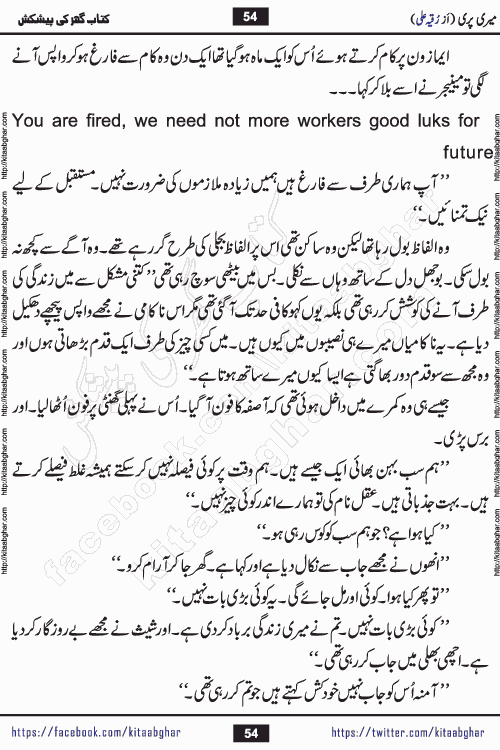 میری پری (از رقیہ علی) 54 کتاب گھر کی پیشکش
ایمازون پر کام کرتے ہوئے اُس کو ایک ماہ ہو گیا تھا ایک دن وہ کام سے فارغ ہو کر واپس آنے
لگی تو مینیجر نے اسے بلا کر کہا۔۔۔
You are fired, we need not more workers good luks for
future
’’آپ ہماری طرف سے فارغ ہیں ہمیں زیادہ ملازموں کی ضرورت نہیں۔ مستقبل کے لیے
نیک تمنائیں۔‘‘
وہ الفاظ بول رہا تھا لیکن وہ ساکن تھی اس پر الفاظ بجلی کی طرح گر رہے تھے۔ وہ آگے سے کچھ نہ
بول سکی۔ بوجھل دل کے ساتھ وہاں سے نکلی۔ بس میں بیٹھی سوچ رہی تھی ’’کتنی مشکل سے میں زندگی کی
طرف آنے کی کوشش کر رہی تھی بلکہ یوں کہو کافی حد تک آ گئی تھی مگر اس ناکامی نے مجھے واپس پیچھے دھکیل
دیا ہے۔ یہ ناکامیاں میرے ہی نصیبوں میں کیوں ہیں۔ میں کسی چیز کی طرف ایک قدم بڑھاتی ہوں اور
وہ مجھ سے سو قدم دور بھاگتی ہے ایسا کیوں میرے ساتھ ہوتا ہے۔‘‘
جیسے ہی وہ کمرے میں داخل ہوئی تھی کہ آصفہ کا فون آ گیا۔ اُس نے پہلی گھنٹی پر فون اُٹھا لیا۔ اور
برس پڑی۔
’’ہم سب بہن بھائی ایک جیسے ہیں۔ ہم وقت پر کوئی فیصلہ نہیں کر سکتے ہمیشہ غلط فیصلے کرتے
ہیں۔ بہت جذباتی ہیں۔ عقل نام کی تو ہمارے اندر کوئی چیز نہیں۔‘‘
’’کیا ہوا ہے؟ جو ہم سب کو کوس رہی ہو۔‘‘
’’انھوں نے مجھے جاب سے نکال دیا ہے اور کہا ہے۔ گھر جا کر آرام کرو۔‘‘
’’تو پھر کیا ہوا۔ کوئی اور مل جائے گی۔ یہ کوئی بڑی بات نہیں۔‘‘
’’کوئی بڑی بات نہیں۔ تم نے میری زندگی برباد کر دی ہے۔ اور شیث نے مجھے بے روزگار کر دیا
ہے۔ اچھی بھلی میں جاب کر رہی تھی۔‘‘
’’آمنہ اُس کو جاب نہیں خودکش کہتے ہیں جو تم کر رہی تھی۔‘‘
https://facebook.com/kitaabghar 54 https://twitter.com/kitaabghar
http://kitaabghar.com